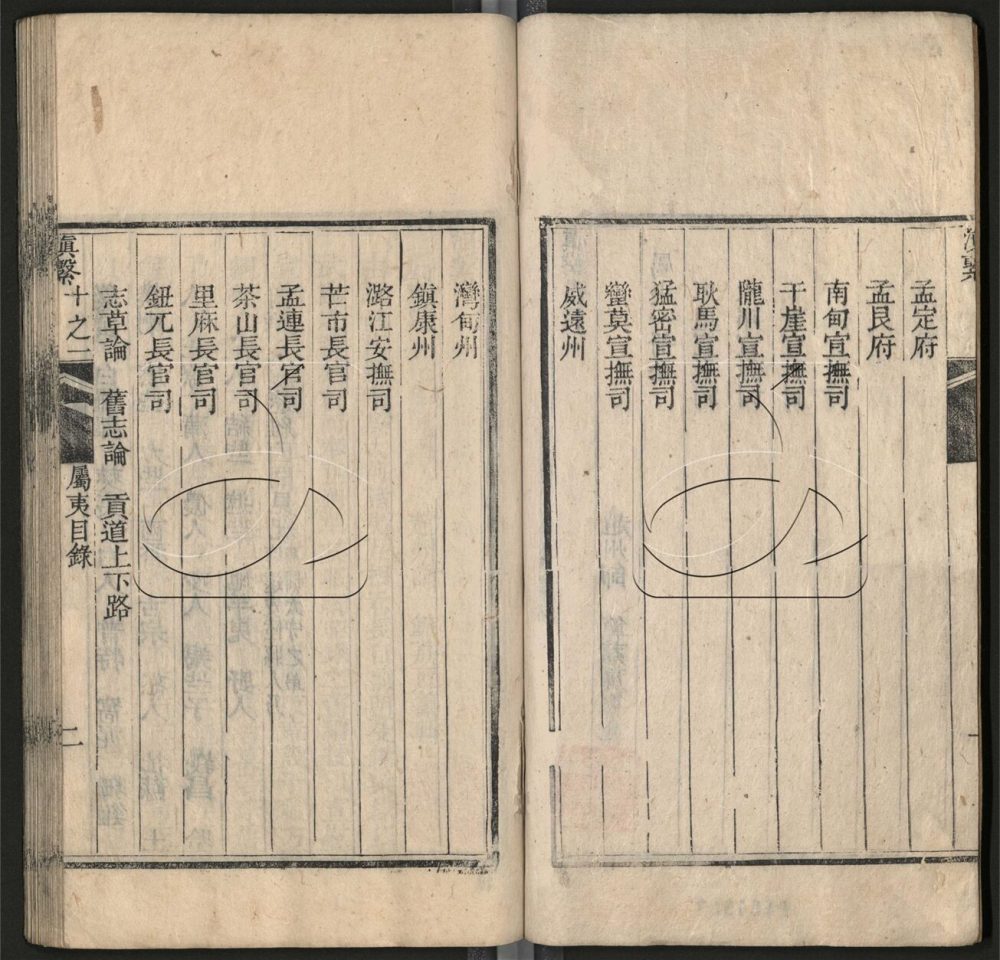 孟定府
孟艮府
南甸宣撫司
干崖宣撫司
隴川宣撫司
耿馬宣撫司
猛密宣撫司
蠻莫宣撫司
威遠州
灣甸州
鎮康州
潞江安撫司
芒市長官司
孟連長官司
茶山長官司
里麻長官司
鈕兀長官司
志草論 舊志論 貢道上下路
滇繫 十之一 屬夷目錄 二